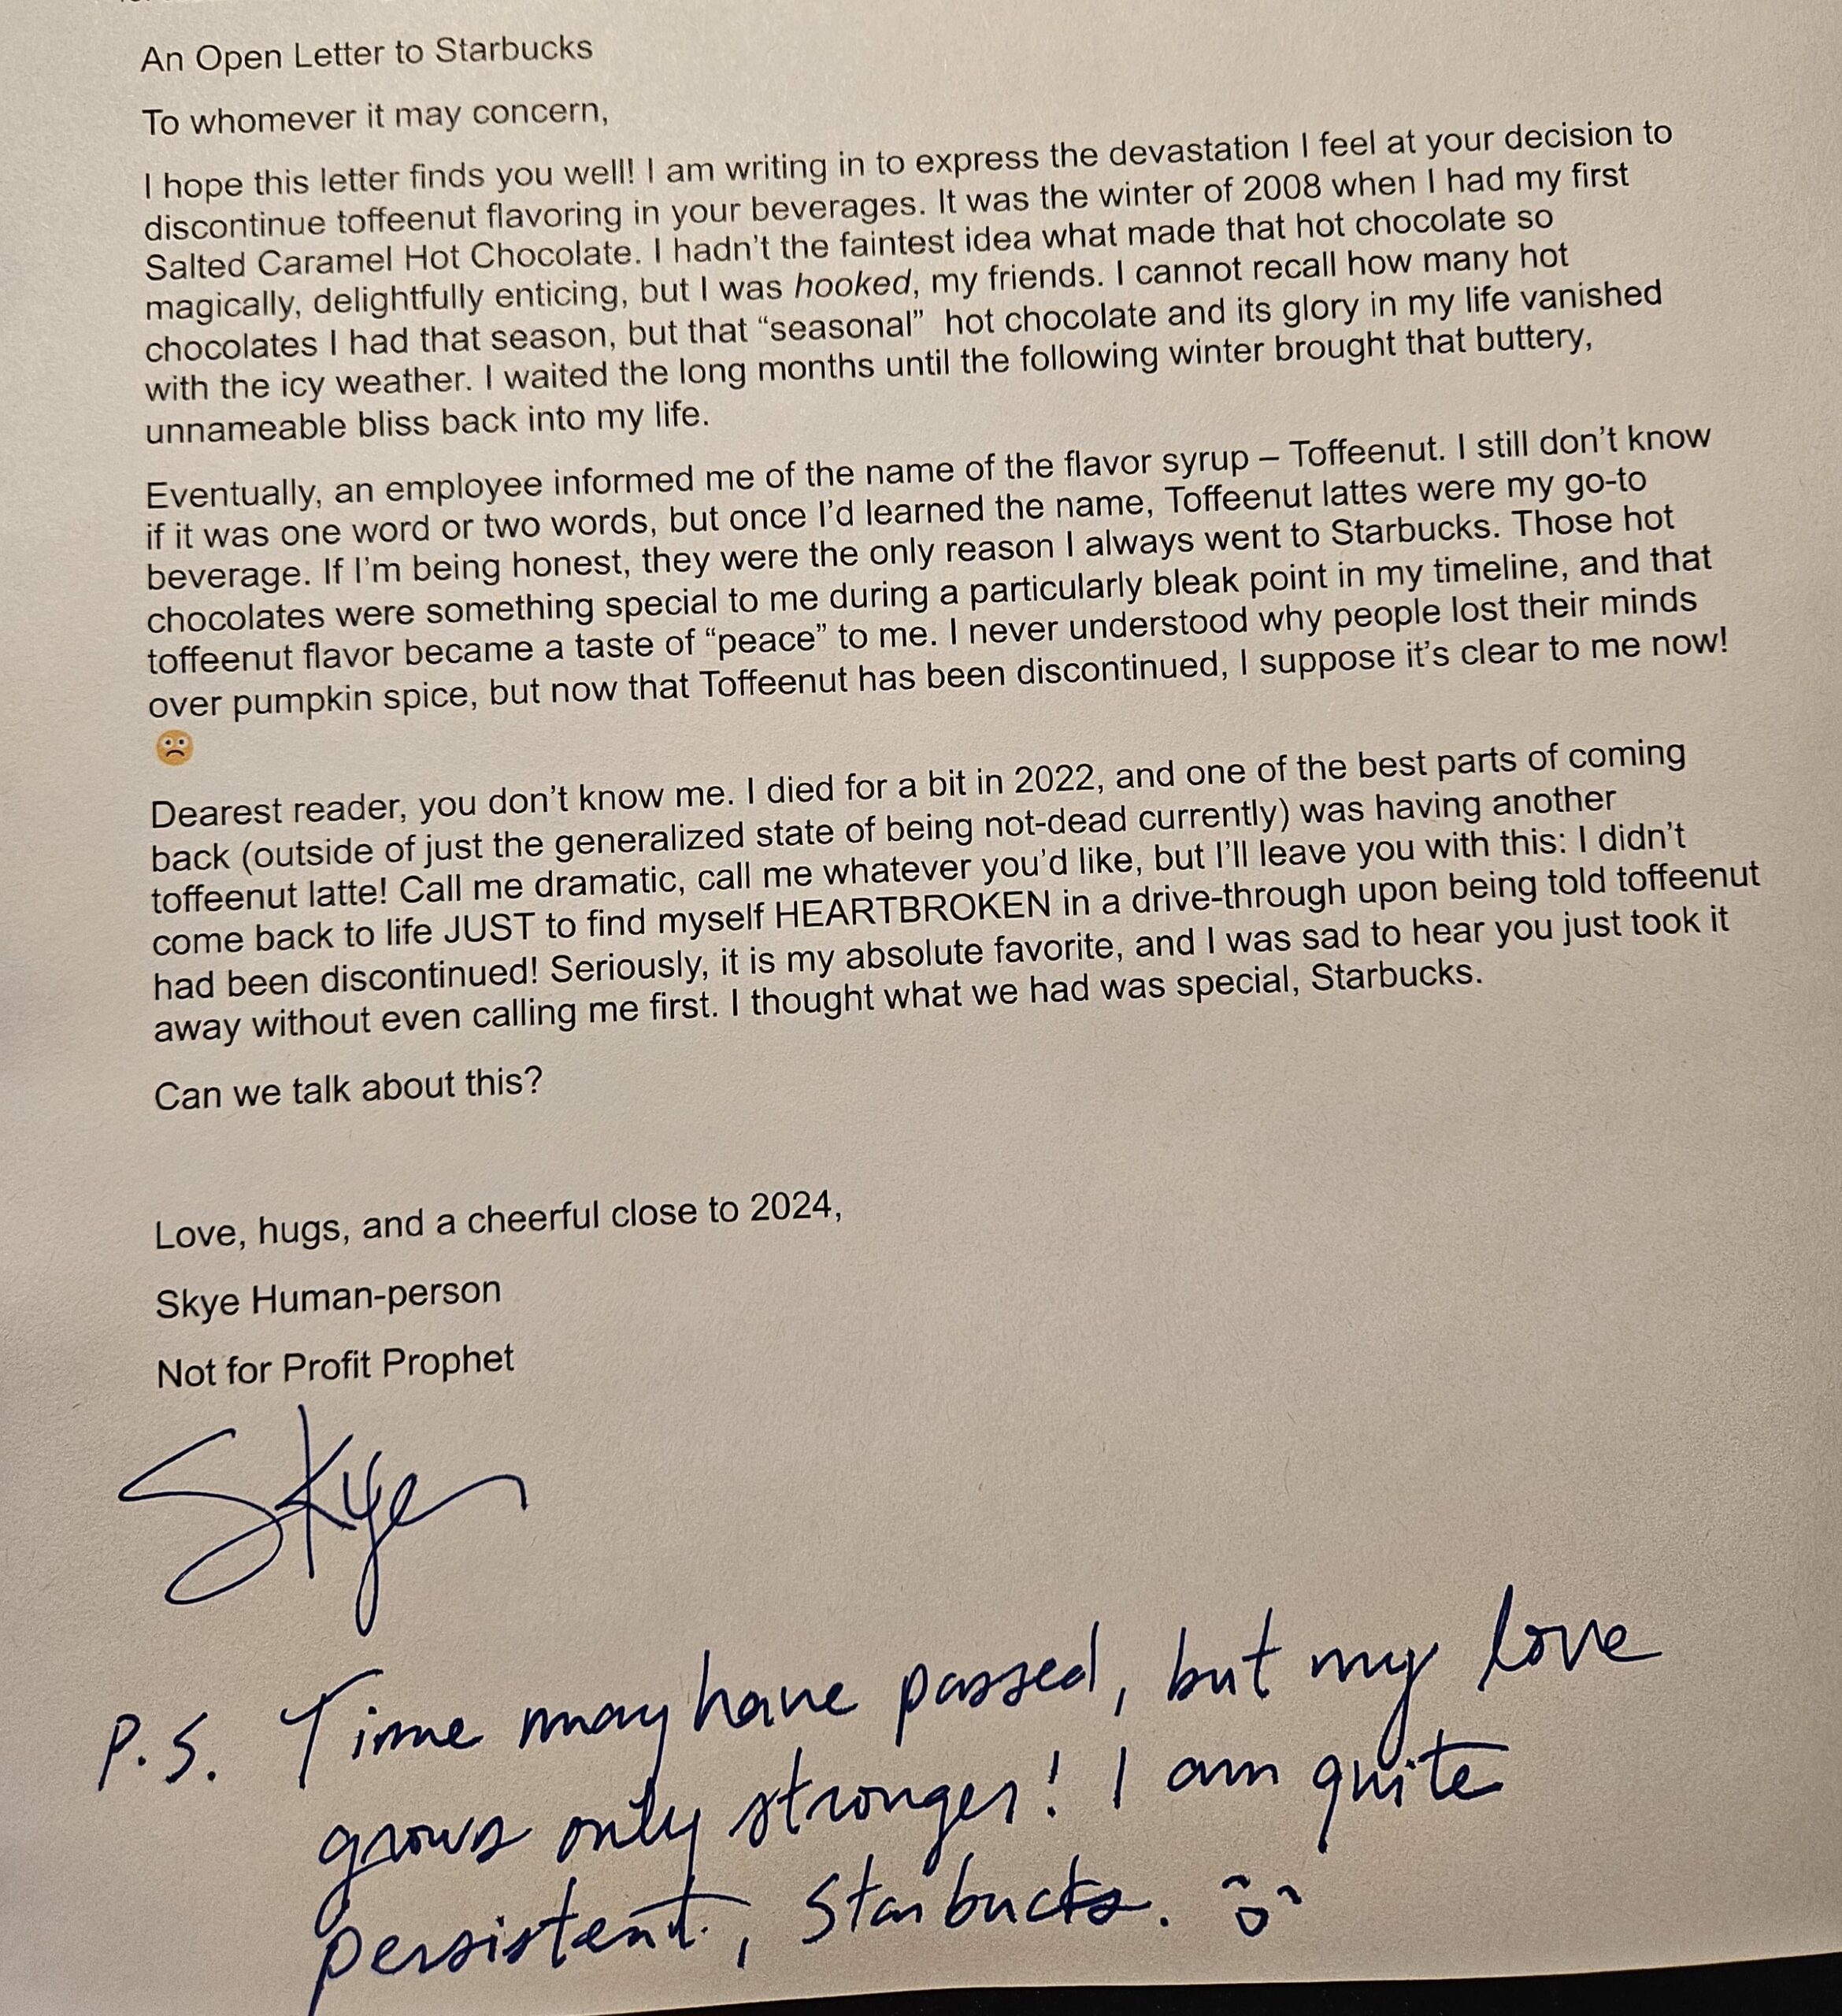 An Open Letter to Starbucks
To whomever it may concern,
I hope this letter finds you well! I am writing in to express the devastation I feel at your decision to
discontinue toffeenut flavoring in your beverages. It was the winter of 2008 when I had my first
Salted Caramel Hot Chocolate. I hadn't the faintest idea what made that hot chocolate so
magically, delightfully enticing, but I was hooked, my friends. I cannot recall how many hot
chocolates I had that season, but that “seasonal” hot chocolate and its glory in my life vanished
with the icy weather. I waited the long months until the following winter brought that buttery,
unnameable bliss back into my life.
Eventually, an employee informed me of the name of the flavor syrup – Toffeenut. I still don't know
if it was one word or two words, but once I'd learned the name, Toffeenut lattes were my go-to
beverage. If I'm being honest, they were the only reason I always went to Starbucks. Those hot
chocolates were something special to me during a particularly bleak point in my timeline, and that
toffeenut flavor became a taste of “peace” to me. I never understood why people lost their minds
over pumpkin spice, but now that Toffeenut has been discontinued, I suppose it's clear to me now!
🙁
Dearest reader, you don't know me. I died for a bit in 2022, and one of the best parts of coming
back (outside of just the generalized state of being not-dead currently) was having another
toffeenut latte! Call me dramatic, call me whatever you'd like, but I'll leave you with this: I didn't
come back to life JUST to find myself HEARTBROKEN in a drive-through upon being told toffeenut
had been discontinued! Seriously, it is my absolute favorite, and I was sad to hear you just took it
away without even calling me first. I thought what we had was special, Starbucks.
Can we talk about this?
Love, hugs, and a cheerful close to 2024,
Skye Human-person
Not for Profit Prophet
Skye
P.S. Time may have passed, but my love
grows only stronger! I am quite
persistent, Starbucks.